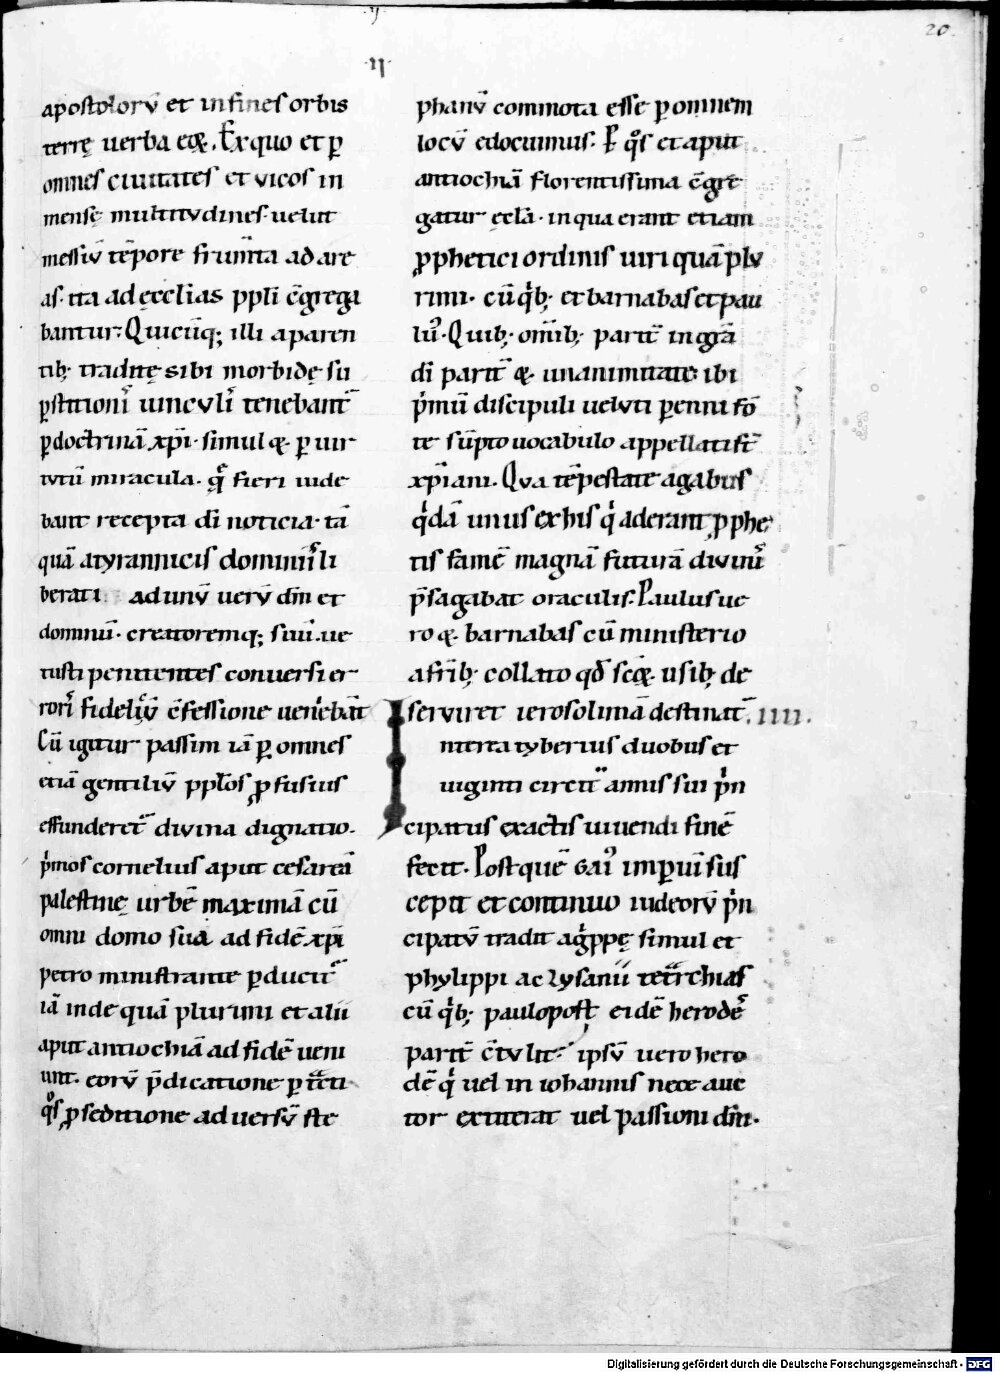 ·II·
20.
apostolorū et in fines orbis
terrę uerba eoꝝ. Ex quo et ꝑ
omnes ciuitates et vicos in
mensę multitvdines uelut
messiū tēpore frum̄ta ad are
as· ita ad ęcclias ppl̄i c̄grega
bantur· Quicūq; illi a paren
tib; traditę sibi morbidę su
ꝑstitionı̄ uincvlı̄ tenebant̄
ꝑ doctrinā xp̄i· simul &· ꝑ uir
tvtū miracula· q̄ fieri uide
bant recepta dī noticia· tā
quā a tyrannicis dominı̄ li
berati ad unū uerū dm̄ et
dominū· creatoremq; suū· ue
tusti penitentes conuersi er
rorı̄ fideliū c̄fessione ueniebāt
Cū igitur passim iā ꝑ omnes
etiā gentiliū pplōs ꝓfusius
effunderet̄ divina dignatio·
p̄mos cornelius aput cesareā
palestinę urbē maximā cū
omni domo sua ad fidē xp̄i
petro ministrante ꝑducit̄
iā inde quā plurimi et alii
aput antiochiā ad fidē ueni
unt· eorū p̄dicatione ꝑt̄t̄i
q̊s ꝓ seditione adversū ste
phanū commota esse ꝑ omnem
locū edocuimus· P̄ q̊s et aput
antiochiā florentissima c̄gre
gatur ęcl̄a· in qua erant etiam
ꝓphetici ordinis uiri quā plv
rimi· cū q̇b; et barnabas et pau
lus· Quib; om̄ib; parit̄ in gr̄a
dī parit̄ &· unanimitate ibi
p̄mū discipuli uelvti ꝑenni fō
te sūpto uocabulo appellati st̄
xp̄iani· Qva tēpestate agabus
q̇dā unus ex his q̇ aderant ꝓphe
tis famē magnā futurā diuinı̄
p̄sagabat oraculis· Paulus ue
ro &· barnabas cū ministerio
a fr̄ib; collato qd̄ sc̄oꝝ usib; de
serviret ierosolimā destinat̄· IIII·
Interea tyberius duobus et
uiginti circit̄ annis sui p̄n
cipatus exactis uiuendi finē
fecit· Post quē gai' imꝑiū sus
cepit et continuo iudeorū p̄n
cipatū tradit agppę simul et
phylippi ac lysanii tetrchias
cū q̇b; paulo post eidē herodē
parit̄ c̄tvlit· ipsū uero hero
dē q̇ uel in iohannis nece auc
tor extiterat uel passioni dn̄i·
Digitalisierung gefördert durch die Deutsche Forschungsgemeinschaft - DFG